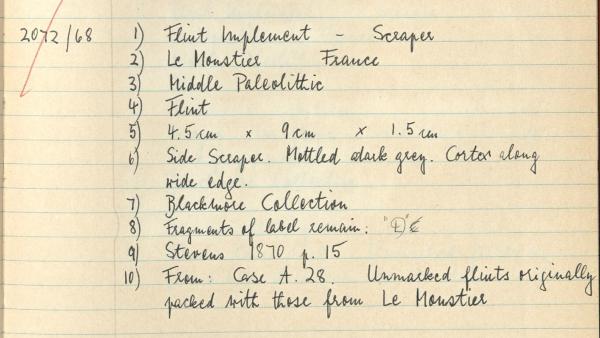 2072/68 1) Flint Implement - Scraper
2) Le Moustier France
3) Middle Paleolithic
4) Flint
5) 4.5 cm x 9 cm x 1.5 cm
6) Side Scraper. Mottled dark grey. Cortex along
wide edge.
7) Blackmore Collection
8) Fragments of label remain:
9) Stevens 1870 p. 15
10) From: Case A. 28. Unmarked flints originally
packed with those from Le Moustier